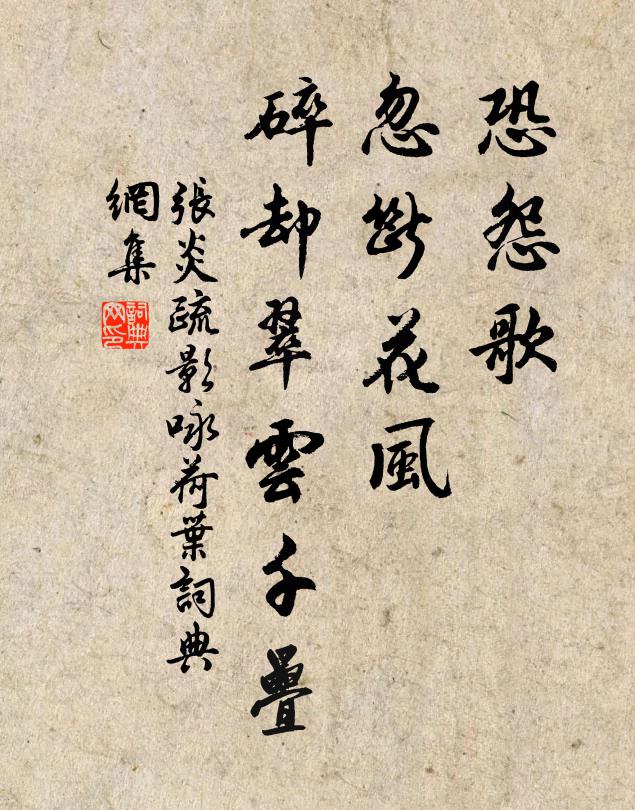 恐怨歌
忽斷花風
碎却翠雲千疊
張炎疏影咏荷葉詞典
網集
詞典
网印